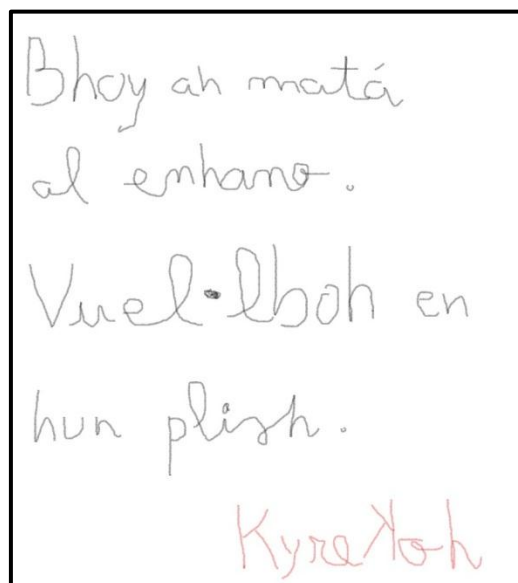 Bhoy ah matá
al enhano.
Vuel·lboh en
hun plish.
Kyrekoh